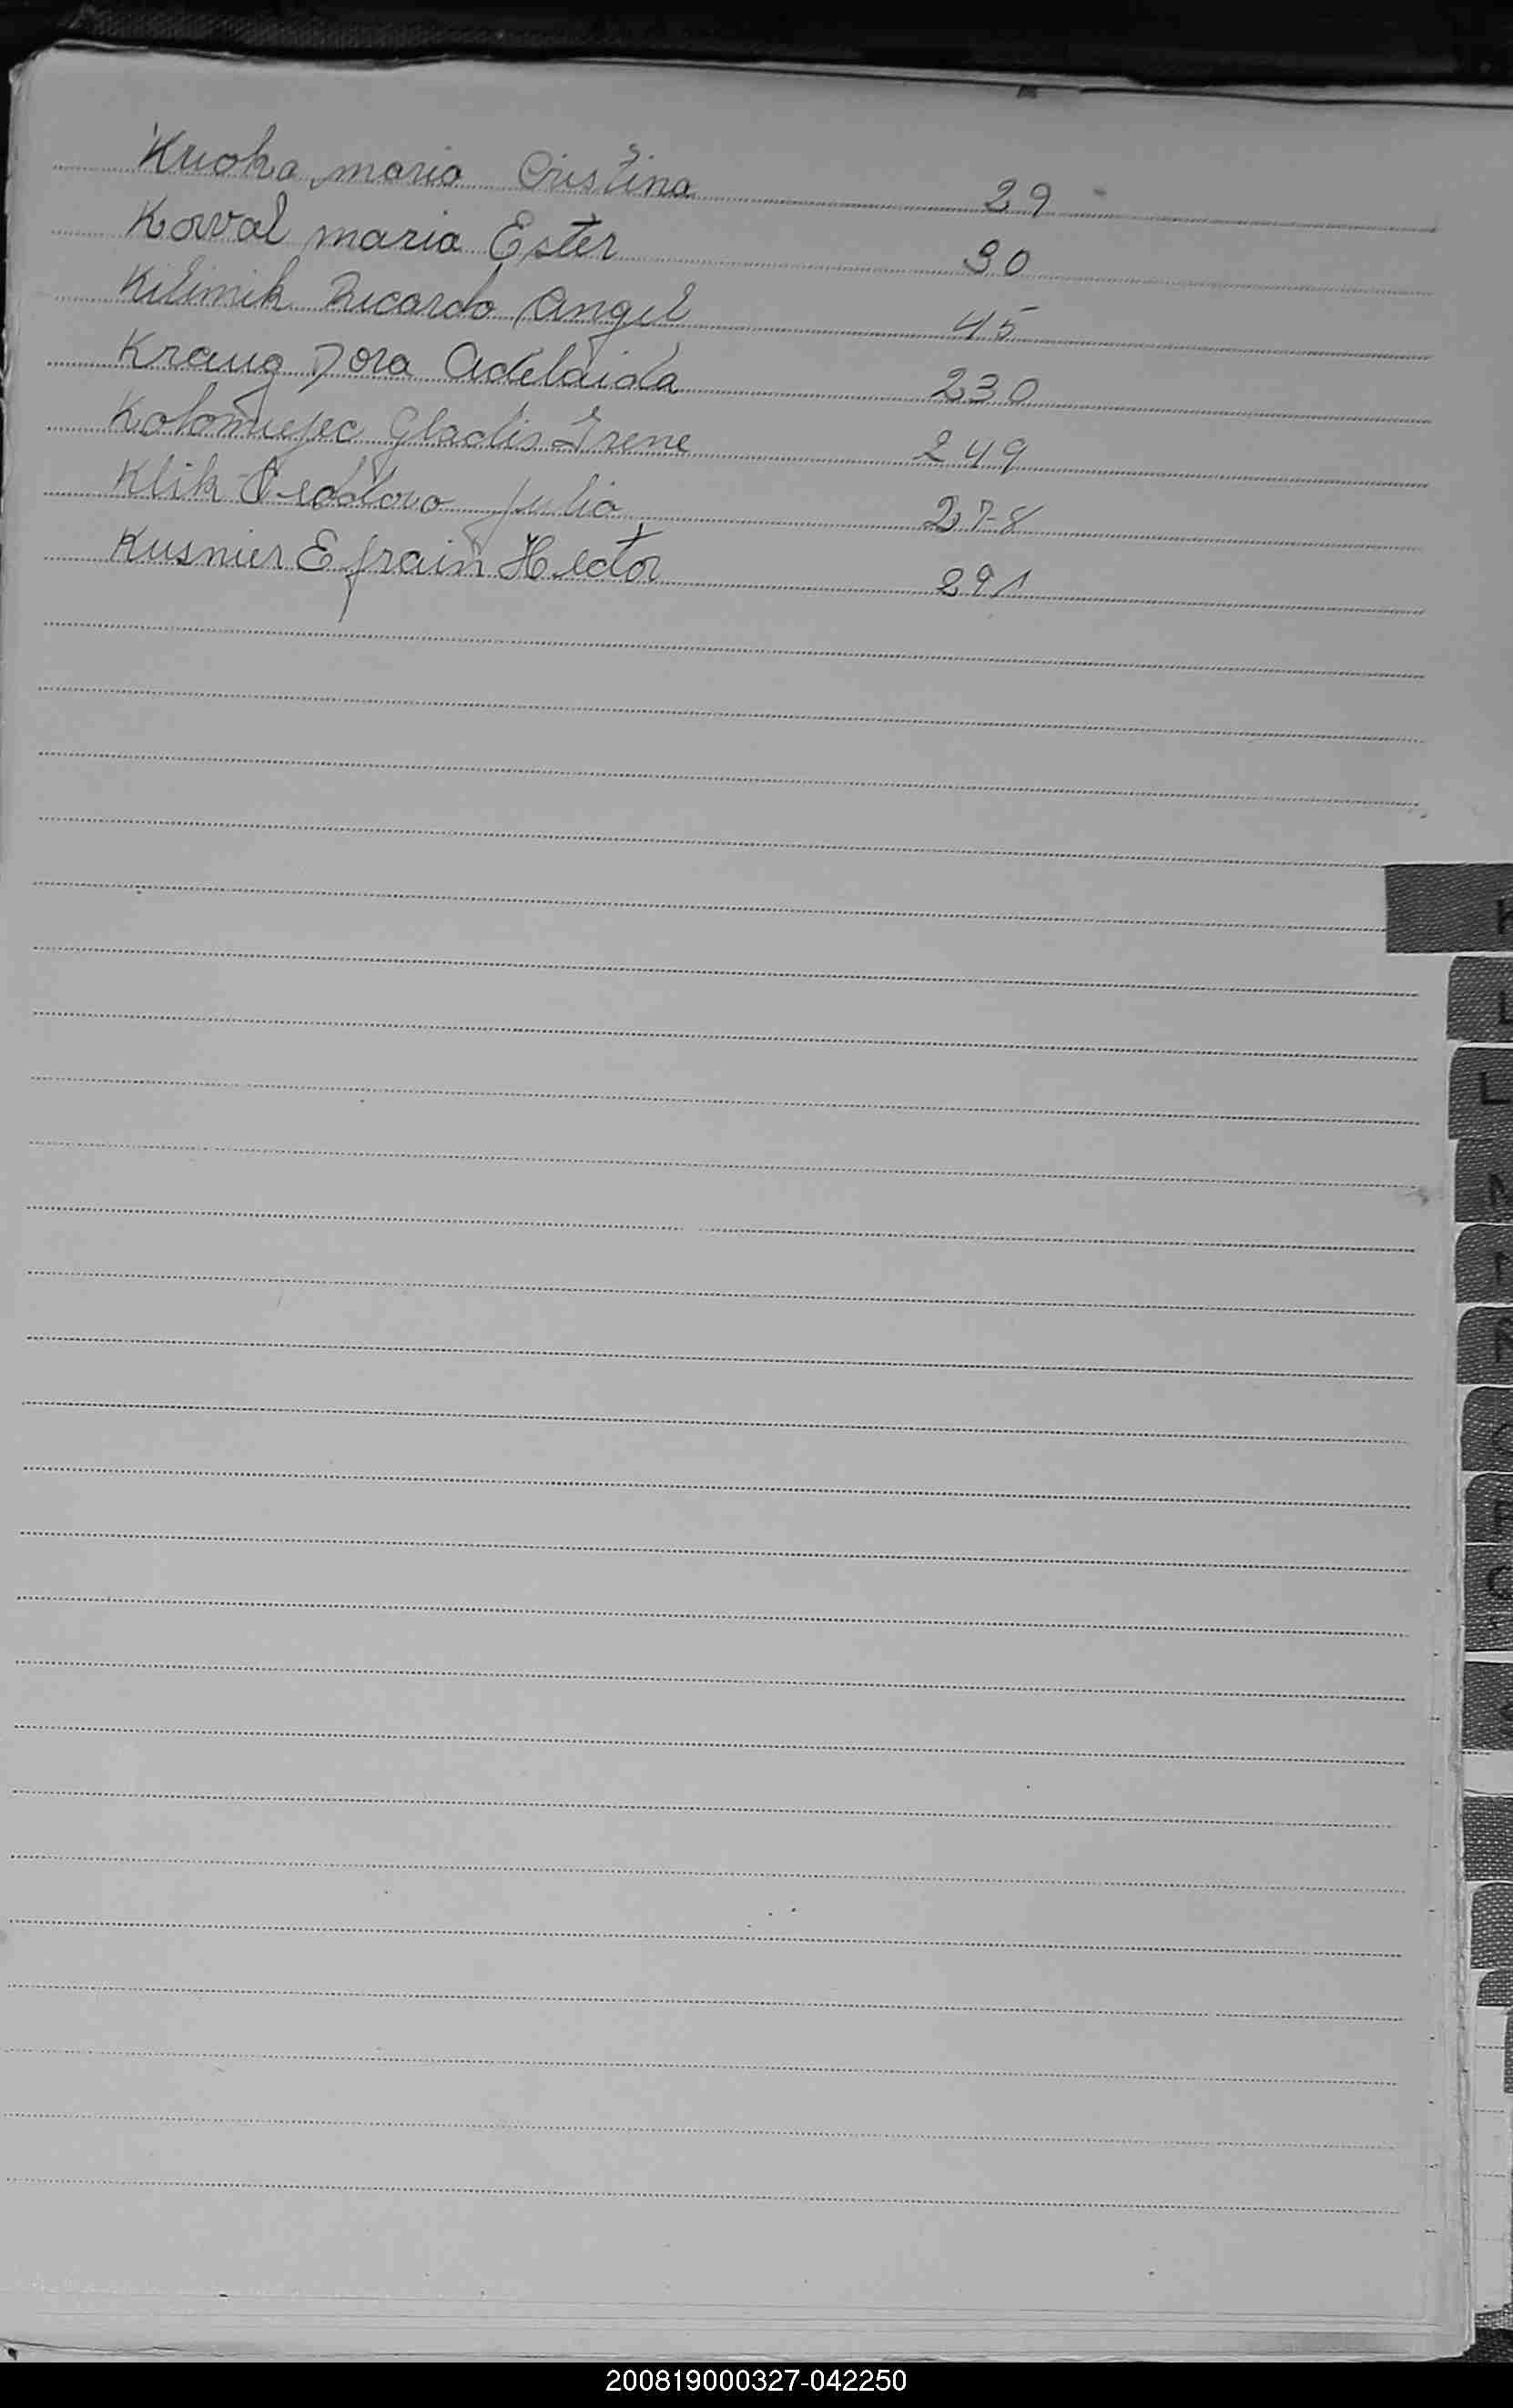 Kruoka maria Cristina 29
Koval maria Ester 30
Kilimik Ricardo Angel 45
Kraug Dora Adelaida 230
Kolomujec Gladis Irene 249
Klik Teodoro Julio 278
Kusnier Efrain Hector 291
K
L
L
N
Q
S
200819000327-042250